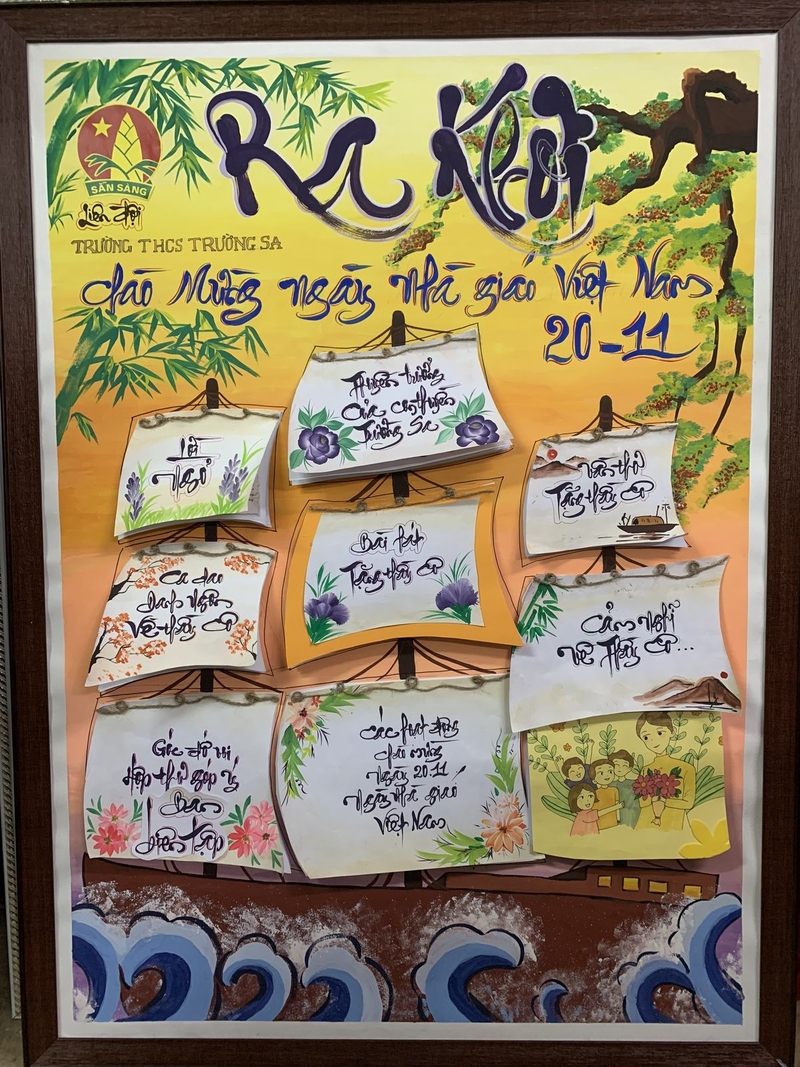 Ra Khơi
SẴN SÀNG
Liên Đội
TRƯỜNG THCS TRƯỜNG SA
Chào Mừng ngày nhà giáo Việt Nam
20-11
Lời
Ngỏ
Thuyền trưởng
Của con thuyền
Trường Sa
Vần thơ
Tặng thầy cô
Ca dao
Danh ngôn
Về thầy cô
Bài hát
Tặng thầy cô
Cảm nghĩ
Về Thầy Cô...
Góc đố vui
Hộp thư góp ý
Ban
biên tập
Các hoạt động
chào mừng
ngày 20.11
Ngày nhà giáo
Việt Nam